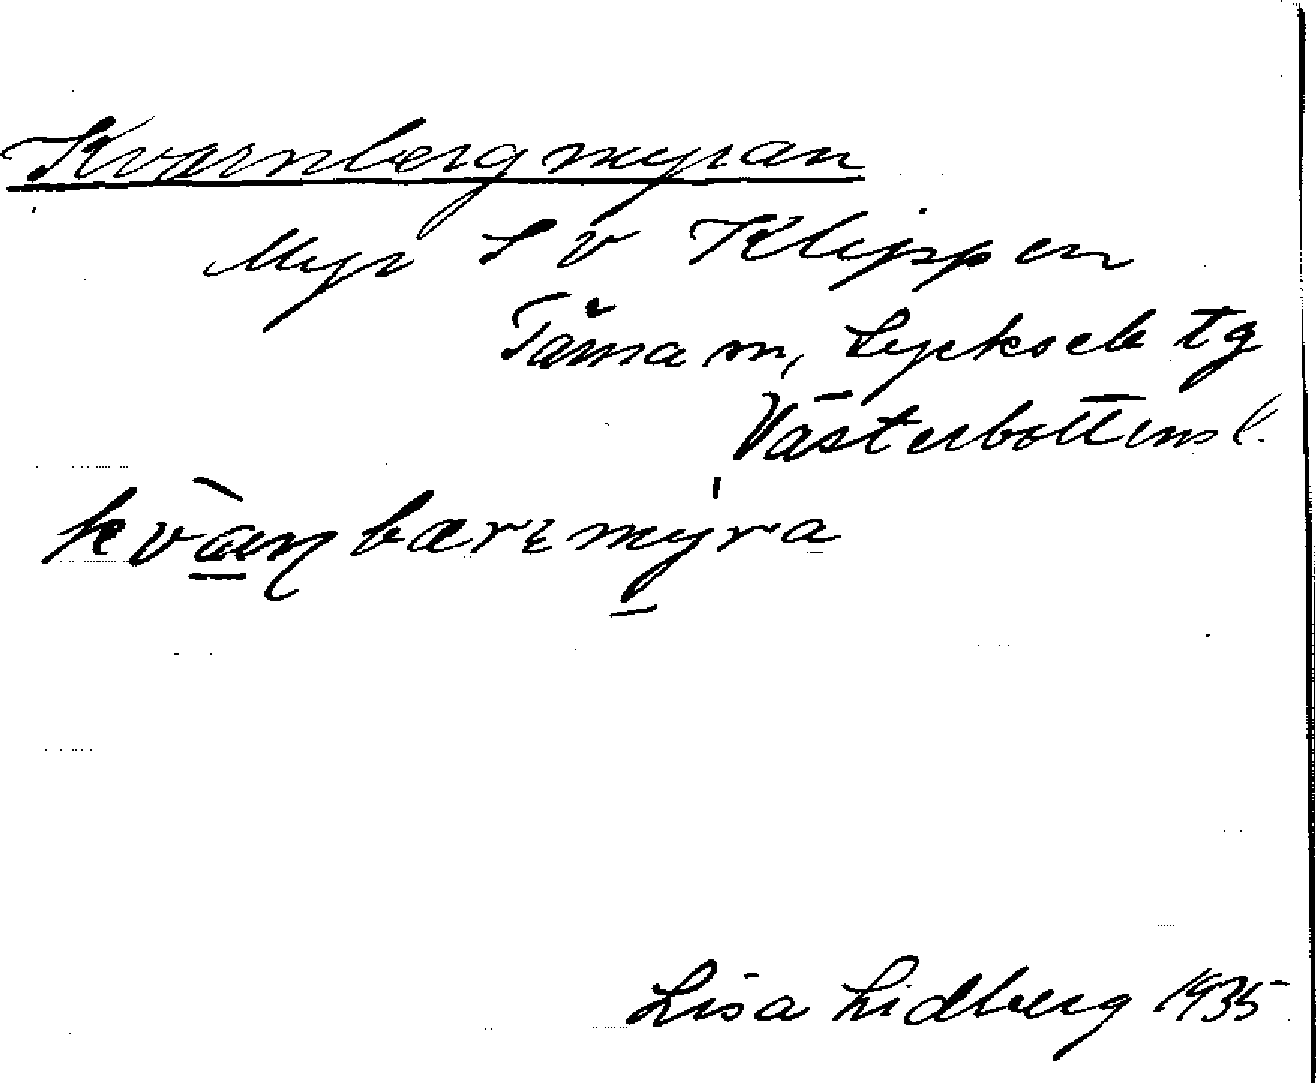 Kvarnbergmyran
Myr S v Klippen
Tärna sn, Lycksele tg
Västerbottens l.
kvàṇbærɩmy̍ra
Lisa Lidberg 1935